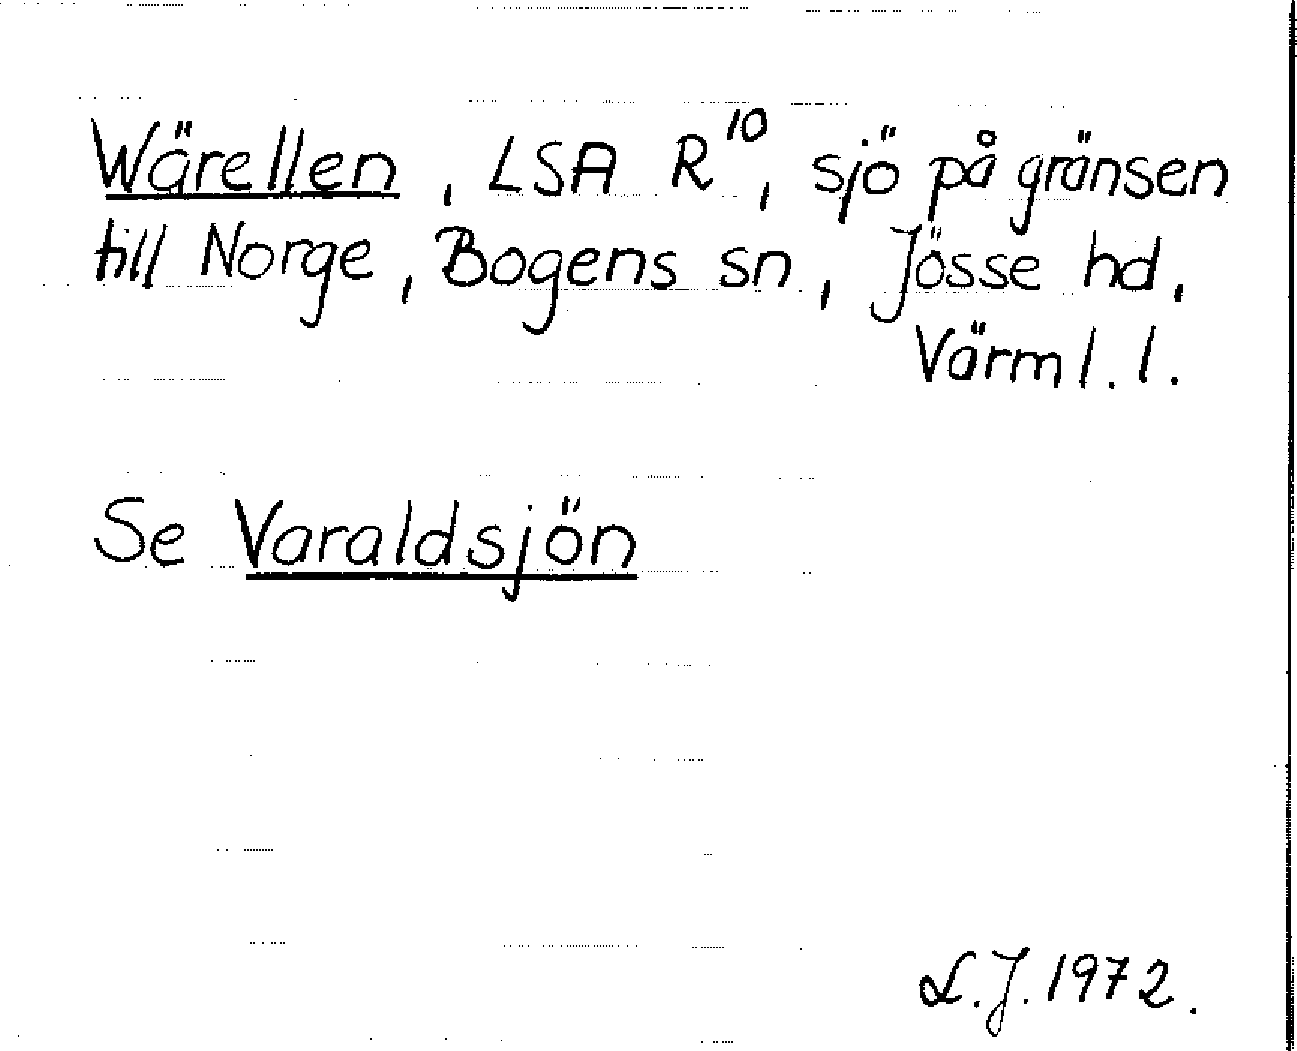 Wärellen, LSA R¹⁰, sjö på gränsen
till Norge, Bogens sn, Jösse hd,
Värml. l.
Se Varaldsjön
L.J. 1972.